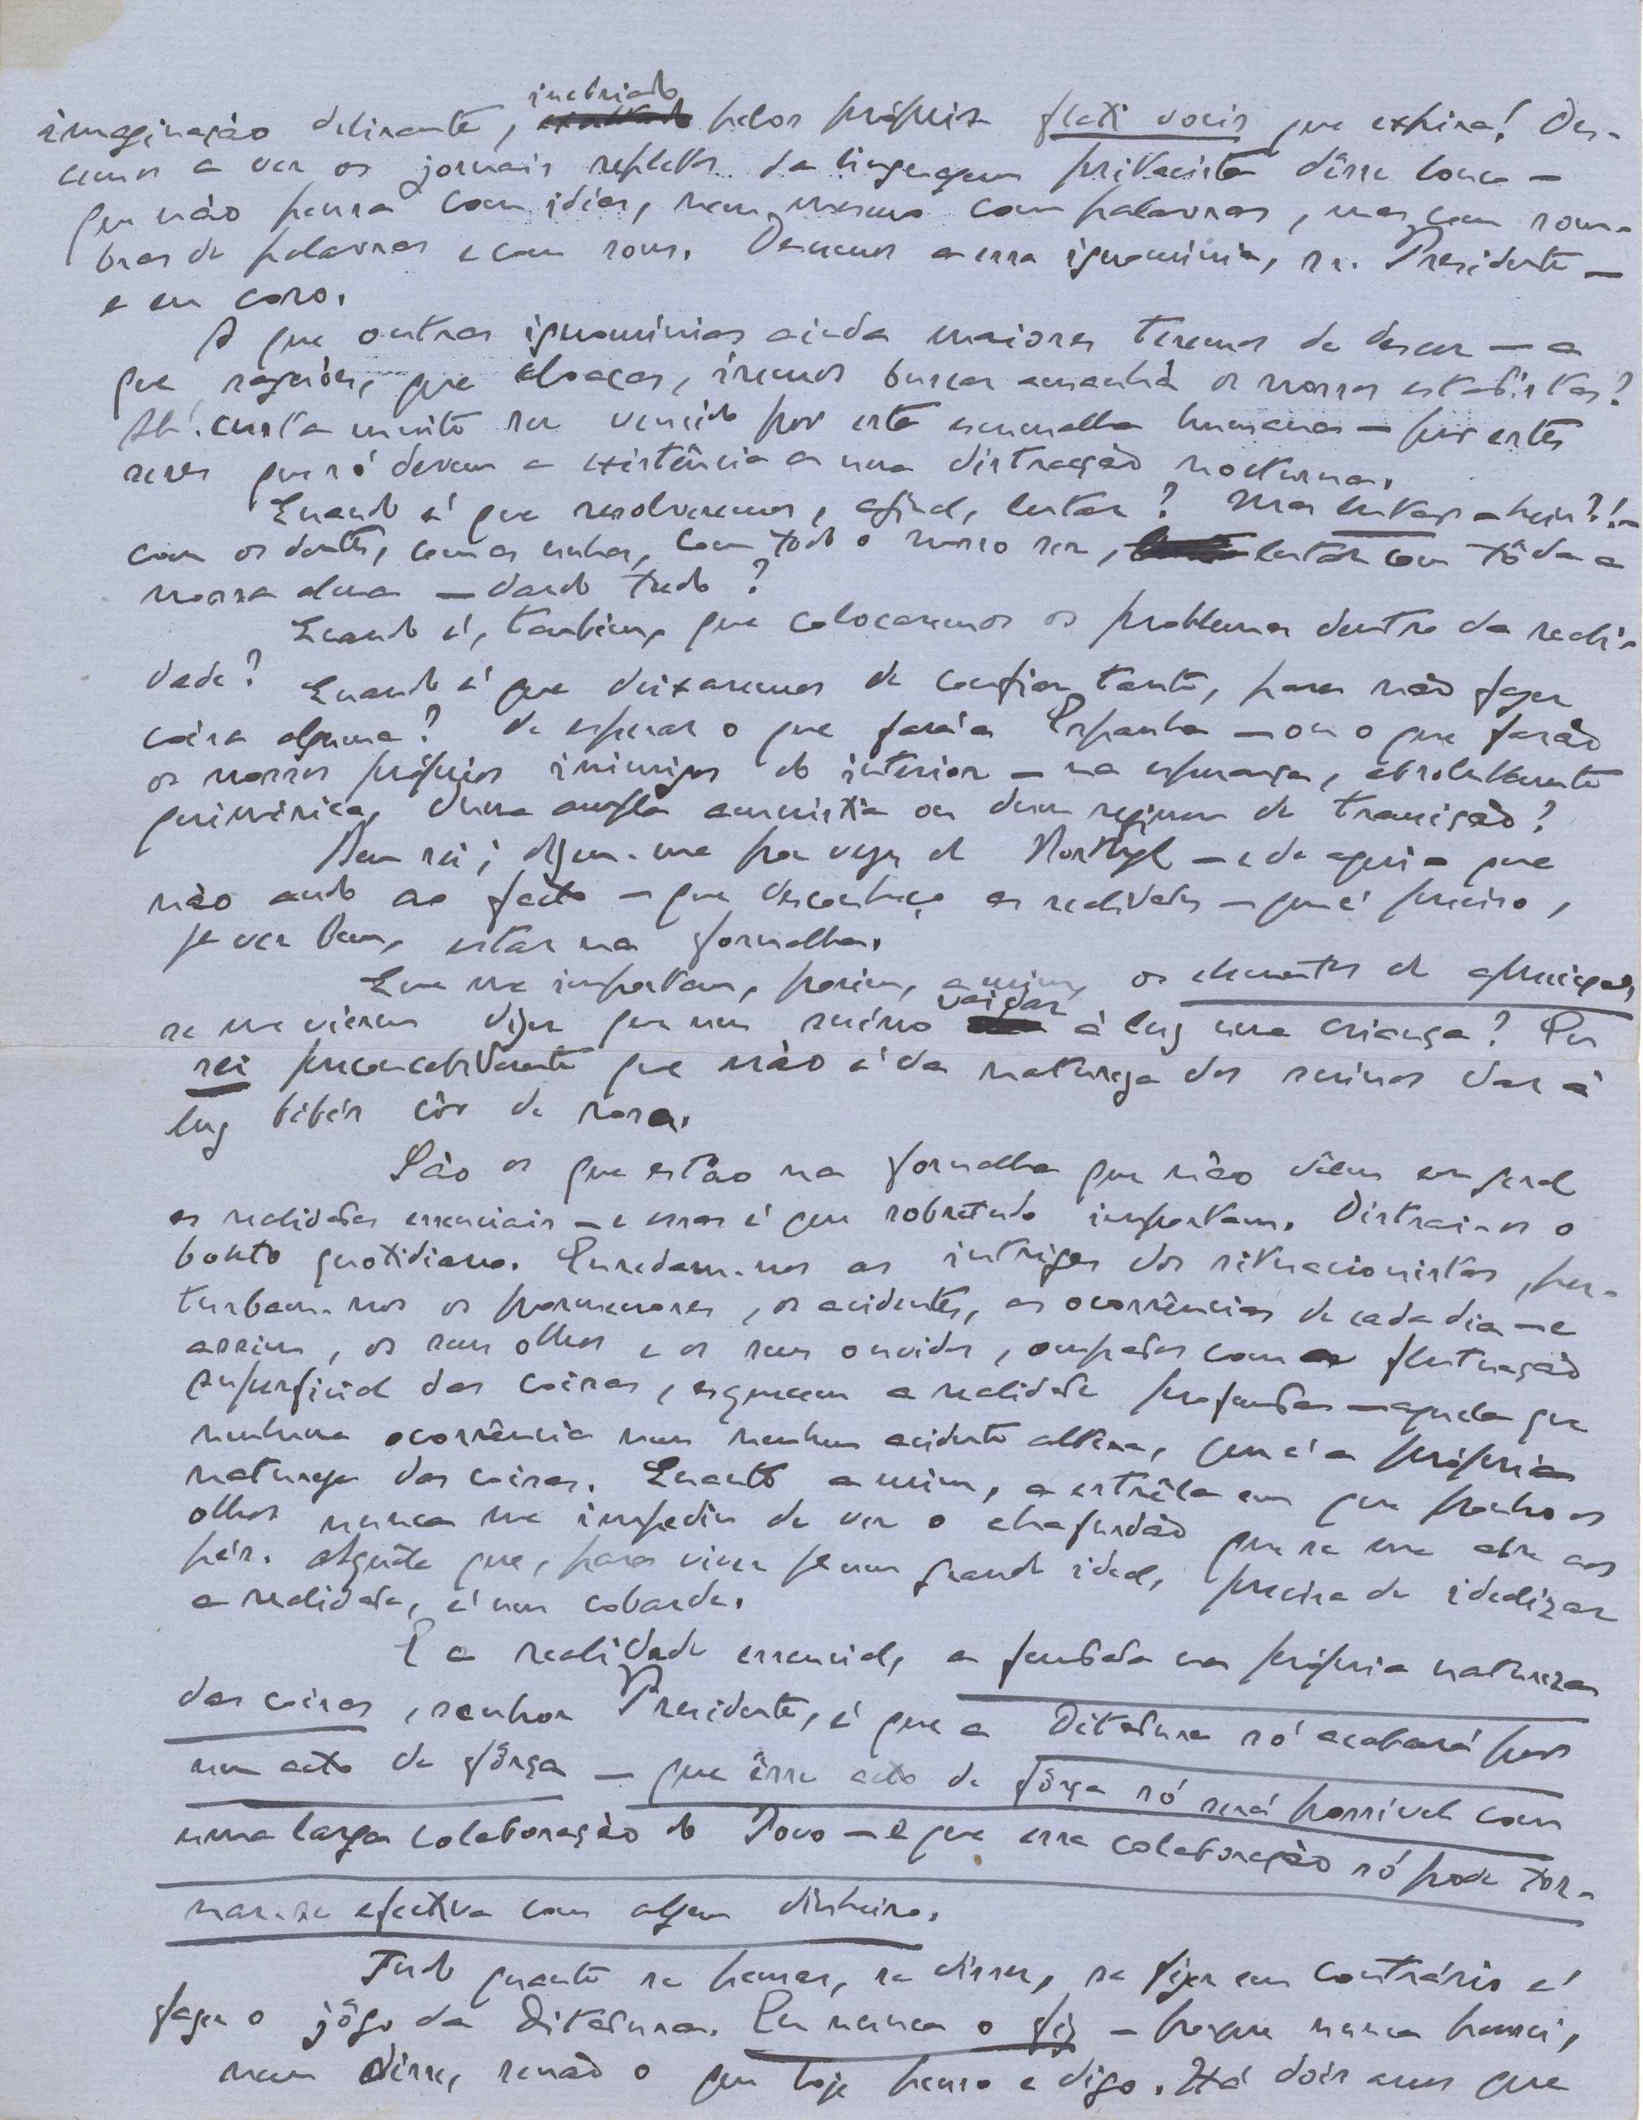 imaginação delirante, inebriado pelos próprios flati vocis que expira! Des-
cemos a ver os jornais repletos da linguagem privativa dêsse louco —
que não pensa com idéias, nem mesmo com palavras, mas com som-
bras de palavras e com sons. Descemos a essa ignomínia, sr. Presidente —
e em coro.
A que outras ignomínias ainda maiores teremos de descer — a
que saguões, que cloacas, iremos buscar amanhã os nossos estadistas?
Ah! custa muito ser vencido por esta escumalha humana — por estes
seres que só devem a existência a uma distração nocturna.
Quando é que resolveremos, afinal, lutar? Mas lutar, hein?! —
com os dentes, com as unhas, com todo o nosso ser, lutar com tôda a
nossa alma — dando tudo?
Quando é, também, que colocaremos os problemas dentro da reali-
dade? Quando é que deixaremos de confiar tanto, para não fazer
coisa alguma? de esperar o que fará a Espanha — ou o que farão
os nossos próprios inimigos do interior — na esperança, absolutamente
quimérica, duma ampla amnistia ou dum regimen de transição?
Bem sei; dizem-me por vezes de Portugal — e de aqui — que
não ando ao facto — que desconheço as realidades — que é preciso,
pª ver bem, estar na fornalha.
Que me importam, porém, a mim, os elementos de apreciação,
se me vierem dizer que um suíno vai dar à luz uma criança? Eu
sei preconcebidamente que não é da natureza dos suínos dar à
luz bébés côr de rosa.
São os que estão na fornalha que não vêem em geral
as realidades essenciais — e essas é que sobretudo importam. Distrai-os o
boato quotidiano. Enredam-nos as intrigas dos situacionistas, per-
turbam-nos os pormenores, os acidentes, as ocorrências de cada dia — e
assim, os seus olhos e os seus ouvidos, ocupados com a flutuação
superficial das coisas, esquecem a realidade profunda — aquela que
nenhuma ocorrência nem nenhum acidente altera, que é a própria
natureza das coisas. Quanto a mim, a estrêla em que ponho os
olhos nunca me impediu de ver o chafurdão que se me abre aos
pés. Aquêle que, para viver pª um grande ideal, precisa de idealizar
a realidade, é um cobarde.
E a realidade essencial, a fundada na própria natureza
das coisas, senhor Presidente, é que a Ditadura só acabará por
um acto de fôrça — que êsse acto de fôrça só será possível com
uma larga colaboração do Povo — e que essa colaboração só pode tor-
nar-se efectiva com algum dinheiro.
Tudo quanto se pensar, se disser, se fizer em contrário é
fazer o jôgo da Ditadura. Eu nunca o fiz — porque nunca pensei,
nem disse, senão o que hoje penso e digo. Há dois anos que